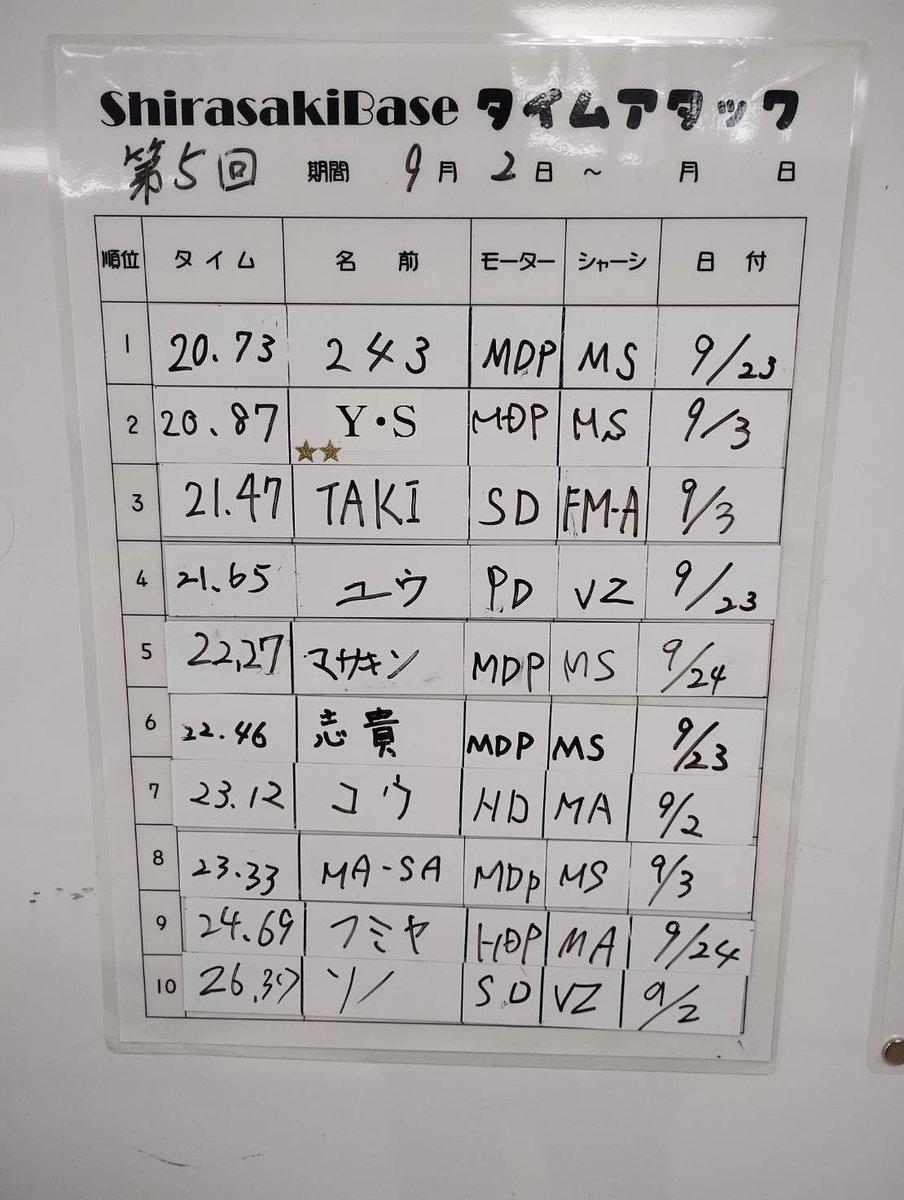 ShirasakiBase タイムアタック
第5回 期間 9月 2日 ～ 月 日
順位 タイム 名前 モーター シャーシ 日付
1 20.73 243 MDP MS 9/23
2 20.87 Y・S MDP MS 9/3
3 21.47 TAKI SD FM-A 9/3
4 21.65 ユウ PD VZ 9/23
5 22.27 マサキン MDP MS 9/24
6 22.46 志貴 MDP MS 9/23
7 23.12 コウ HD MA 9/2
8 23.33 MA-SA MDP MS 9/3
9 24.69 フミヤ HDP MA 9/24
10 ソノ SD VZ 9/2